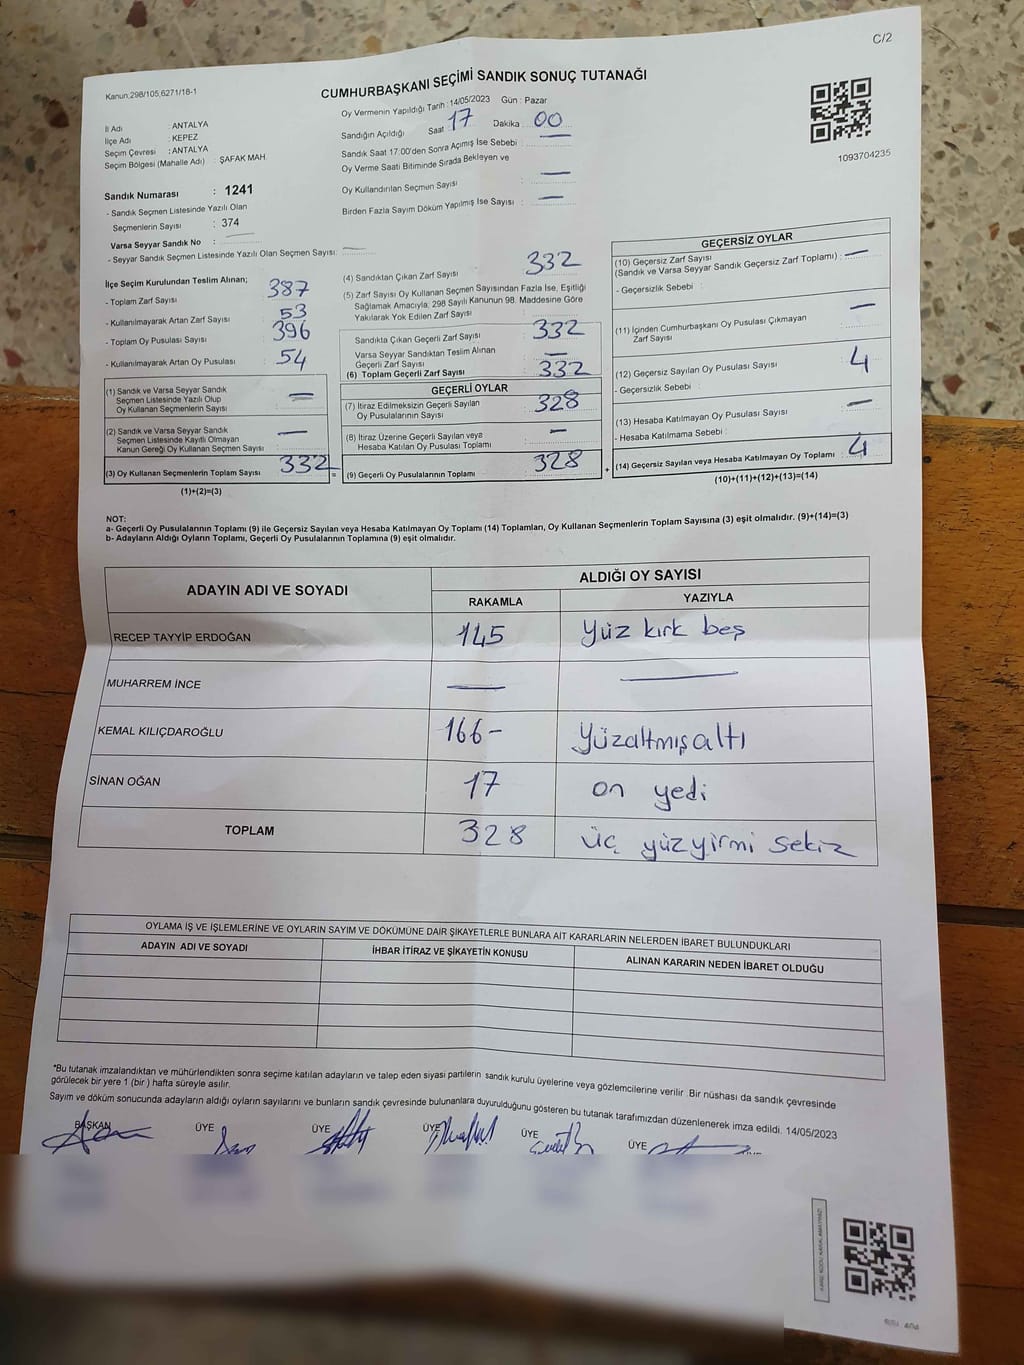 C/2
Kanun;298/105,6271/18-1
CUMHURBAŞKANI SEÇİMİ SANDIK SONUÇ TUTANAĞI
Oy Vermenin Yapıldığı Tarih : 14/05/2023 Gün : Pazar
İl Adı : ANTALYA
İlçe Adı : KEPEZ
Seçim Çevresi : ANTALYA
Seçim Bölgesi (Mahalle Adı) : ŞAFAK MAH.
Sandığın Açıldığı Saat 17 Dakika 00
Sandık Saat 17:00'den Sonra Açımış İse Sebebi : —
Oy Verme Saati Bitiminde Sırada Bekleyen ve
Oy Kullandırılan Seçmen Sayısı : —
Birden Fazla Sayım Döküm Yapılmış İse Sayısı : —
1093704235
Sandık Numarası : 1241
- Sandık Seçmen Listesinde Yazılı Olan
Seçmenlerin Sayısı : 374
Varsa Seyyar Sandık No : —
- Seyyar Sandık Seçmen Listesinde Yazılı Olan Seçmen Sayısı: —
İlçe Seçim Kurulundan Teslim Alınan;
- Toplam Zarf Sayısı 387
- Kullanılmayarak Artan Zarf Sayısı 53
- Toplam Oy Pusulası Sayısı 396
- Kullanılmayarak Artan Oy Pusulası 54
(1) Sandık ve Varsa Seyyar Sandık
Seçmen Listesinde Yazılı Olup
Oy Kullanan Seçmenlerin Sayısı : —
(2) Sandık ve Varsa Seyyar Sandık
Seçmen Listesinde Kayıtlı Olmayan
Kanun Gereği Oy Kullanan Seçmen Sayısı : —
(3) Oy Kullanan Seçmenlerin Toplam Sayısı 332
(1)+(2)=(3)
(4) Sandıktan Çıkan Zarf Sayısı : 332
(5) Zarf Sayısı Oy Kullanan Seçmen Sayısından Fazla İse, Eşitliği
Sağlamak Amacıyla; 298 Sayılı Kanunun 98. Maddesine Göre
Yakılarak Yok Edilen Zarf Sayısı :
Sandıkta Çıkan Geçerli Zarf Sayısı : 332
Varsa Seyyar Sandıktan Teslim Alınan
Geçerli Zarf Sayısı : —
(6) Toplam Geçerli Zarf Sayısı : 332
GEÇERLİ OYLAR
(7) İtiraz Edilmeksizin Geçerli Sayılan
Oy Pusulalarının Sayısı : 328
(8) İtiraz Üzerine Geçerli Sayılan veya
Hesaba Katılan Oy Pusulası Toplamı : —
(9) Geçerli Oy Pusulalarının Toplamı : 328
GEÇERSİZ OYLAR
(10) Geçersiz Zarf Sayısı
(Sandık ve Varsa Seyyar Sandık Geçersiz Zarf Toplamı) : —
- Geçersizlik Sebebi :
(11) İçinden Cumhurbaşkanı Oy Pusulası Çıkmayan
Zarf Sayısı : —
(12) Geçersiz Sayılan Oy Pusulası Sayısı : 4
- Geçersizlik Sebebi :
(13) Hesaba Katılmayan Oy Pusulası Sayısı : —
- Hesaba Katılmama Sebebi :
(14) Geçersiz Sayılan veya Hesaba Katılmayan Oy Toplamı : 4
(10)+(11)+(12)+(13)=(14)
NOT:
a- Geçerli Oy Pusulalarının Toplamı (9) ile Geçersiz Sayılan veya Hesaba Katılmayan Oy Toplamı (14) Toplamları, Oy Kullanan Seçmenlerin Toplam Sayısına (3) eşit olmalıdır. (9)+(14)=(3)
b- Adayların Aldığı Oyların Toplamı, Geçerli Oy Pusulalarının Toplamına (9) eşit olmalıdır.
ADAYIN ADI VE SOYADI ALDIĞI OY SAYISI
RAKAMLA YAZIYLA
RECEP TAYYİP ERDOĞAN 145 Yüz kırk beş
MUHARREM İNCE — —
KEMAL KILIÇDAROĞLU 166- Yüzaltmışaltı
SİNAN OĞAN 17 on yedi
TOPLAM 328 üç yüzyirmi sekiz
OYLAMA İŞ VE İŞLEMLERİNE VE OYLARIN SAYIM VE DÖKÜMÜNE DAİR ŞİKAYETLERLE BUNLARA AİT KARARLARIN NELERDEN İBARET BULUNDUKLARI
ADAYIN ADI VE SOYADI İHBAR İTİRAZ VE ŞİKAYETİN KONUSU ALINAN KARARIN NEDEN İBARET OLDUĞU
*Bu tutanak imzalandıktan ve mühürlendikten sonra seçime katılan adayların ve talep eden siyasi partilerin sandık kurulu üyelerine veya gözlemcilerine verilir. Bir nüshası da sandık çevresinde
görülecek bir yere 1 (bir ) hafta süreyle asılır.
Sayım ve döküm sonucunda adayların aldığı oyların sayılarını ve bunların sandık çevresinde bulunanlara duyurulduğunu gösteren bu tutanak tarafımızdan düzenlenerek imza edildi. 14/05/2023
BAŞKAN ÜYE ÜYE ÜYE ÜYE ÜYE